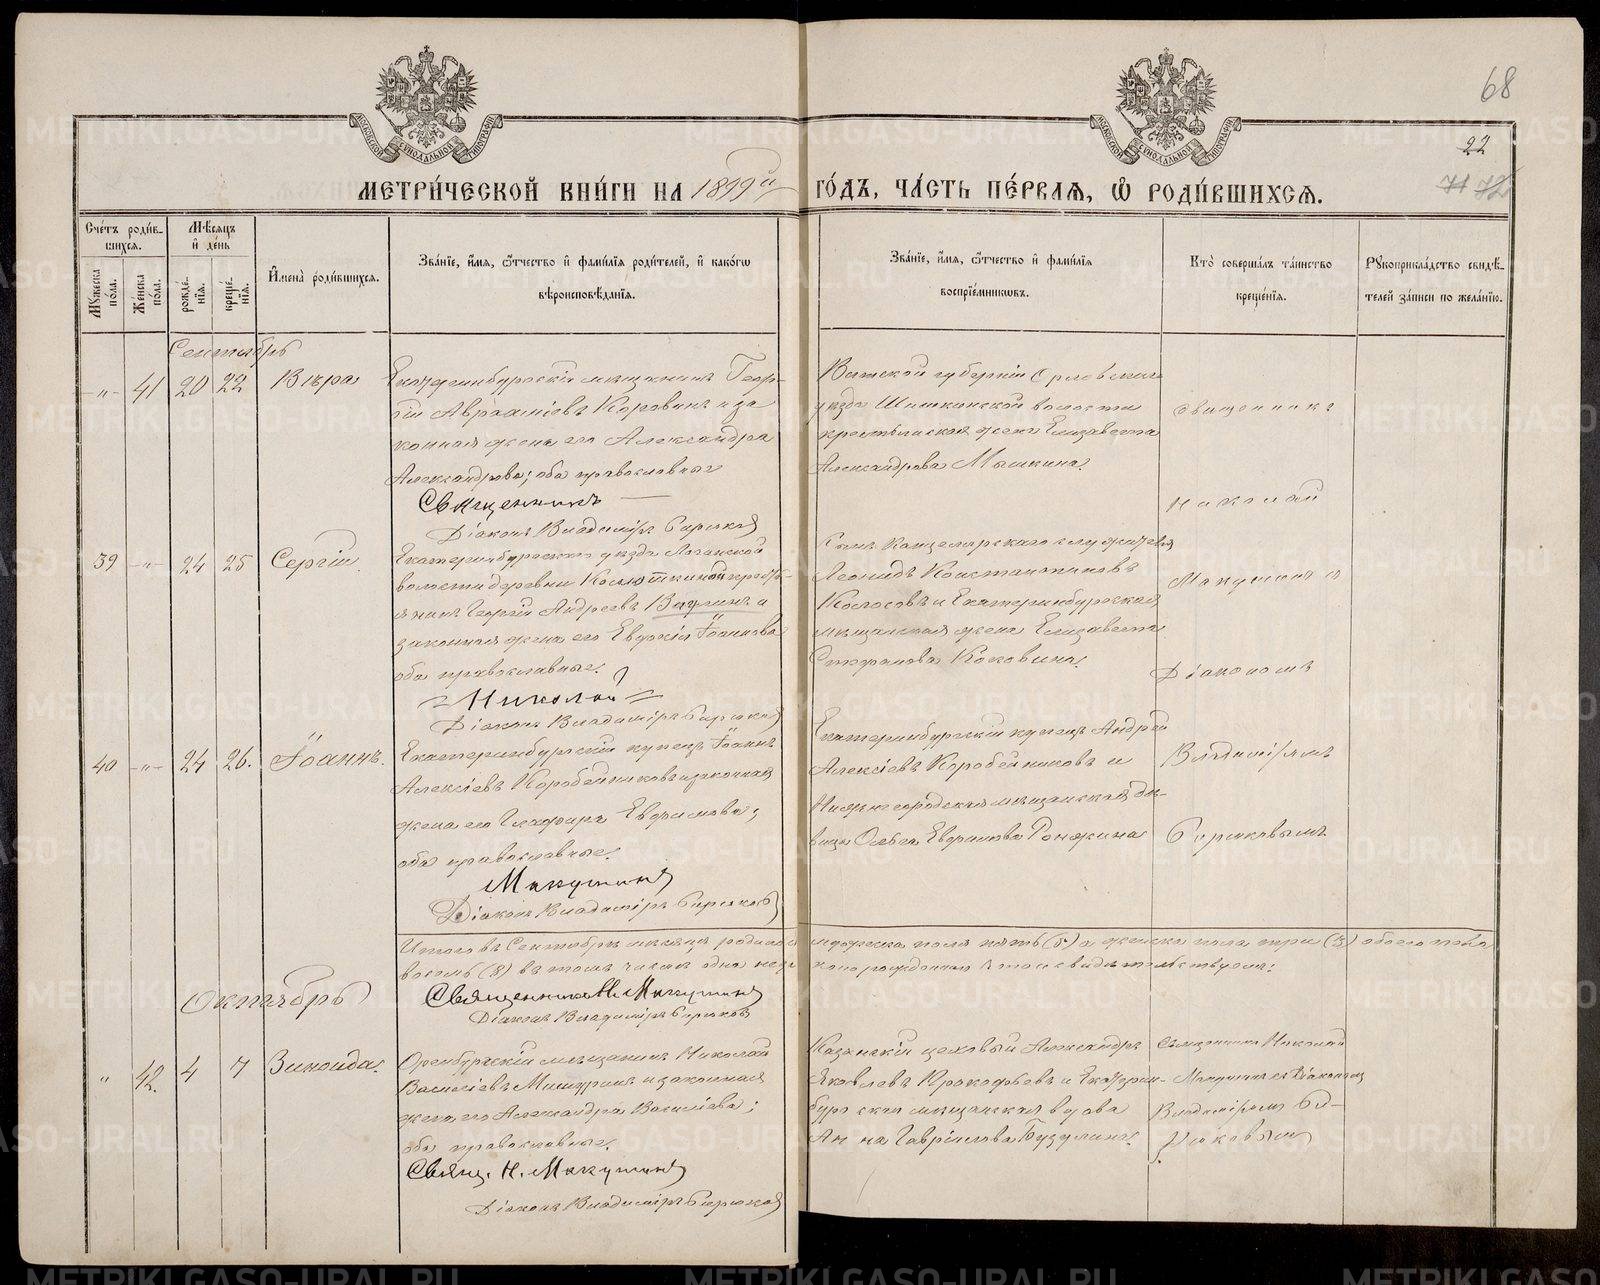 68
22
71 72
МОСКОВСКОЙ СѴНОДАЛЬНОЙ ТИПОГРАФІИ
МОСКОВСКОЙ СѴНОДАЛЬНОЙ ТИПОГРАФІИ
МЕТРИ́ЧЕСКОЙ КНИ́ГИ НА 1899й ГО́ДЪ, ЧА́СТЬ ПЕ́РВАѦ, Ѡ҆ РОДИ́ВШИХСѦ.
Сче́тъ роди́вшихсѧ.
Мꙋ́жеска по́ла.
Же́нска по́ла.
Мѣ́сѧцъ и҆ де́нь
рожде́нїѧ.
креще́нїѧ.
И҆мена̀ роди́вшихсѧ.
Зва́нїе, и҆́мѧ, ѻ҆́тчество и҆ фами́лїѧ роди́телей, и҆ како́гѡ
вѣроисповѣ́данїѧ.
Зва́нїе, и҆́мѧ, ѻ҆́тчество и҆ фами́лїѧ
воспрїе́мникѡвъ.
Кто̀ соверша́лъ та́инство
креще́нїѧ.
Рꙋкоприкла́дство свидѣ́телей за́писи по жела́нїю.
Сентябрь
-„- 41 20 22 Вѣра
Екатеринбургскій мѣщанинъ Геор-
гій Аврааміевъ Коровинъ и за
конная жена его Александра
Александрова; оба православные
Священникъ
Діаконъ Владиміръ Бирюковъ
Вятской губерніи Орловскаго
уѣзда Шишкинской волости
крестьянская жена Елизавета
Александрова Мышкина.
Священникъ
39 -„- 24 25 Сергій
Екатеринбургскаго уѣзда Логиновской
волости деревни крестья-
нинъ Георгій Андреевъ Ваулинъ и
законная жена его Евдокія Іоаннова
оба православные.
Николай
Діаконъ Владиміръ Бирюковъ
Сынъ Канцелярскаго служителя
Леонидъ Константиновъ
Колосовъ и Екатеринбургская
мѣщанская жена Елизавета
Стефанова Коковина.
Николай
Макушинъ съ
Діакономъ
40 -„- 24 26. Іоаннъ.
Екатеринбургскій купецъ Іоаннъ
Алексіевъ Коробейниковъ и законная
жена его Глафира Евфимова;
оба православные.
Макушинъ
Діаконъ Владиміръ Бирюковъ
Екатеринбургскій купецъ Андрей
Алексіевъ Коробейниковъ и
Нижнегородская мѣщанская дѣ-
вица Ольга Евфимова Ронжина
Владиміромъ
Бирюковымъ
Итого въ Сентябрѣ мѣсяцѣ родилось мужеска пола пять (5) а женска пола три (3) обоего пола
восемь (8) въ томъ числѣ одна не
Священникъ Н. Макушинъ
Діаконъ Владиміръ Бирюковъ
Октябрь
„ 42. 4 7 Зиноида.
Оренбургскій мѣщанинъ Николай
Василіевъ Мишуринъ и законная
жена его Александра Василіева;
оба православные.
Свящ. Н. Макушинъ
Діаконъ Владиміръ Бирюковъ
Казанскій цеховый Александръ
Яковлевъ Прокофьевъ и Екатерин-
бургская мѣщанская вдова
Анна Гавріилова Бузулина.
Священникъ Николай
Макушинъ съ Діакономъ
Владиміромъ Би-
рюковымъ
METRIKI.GASO-URAL.RU